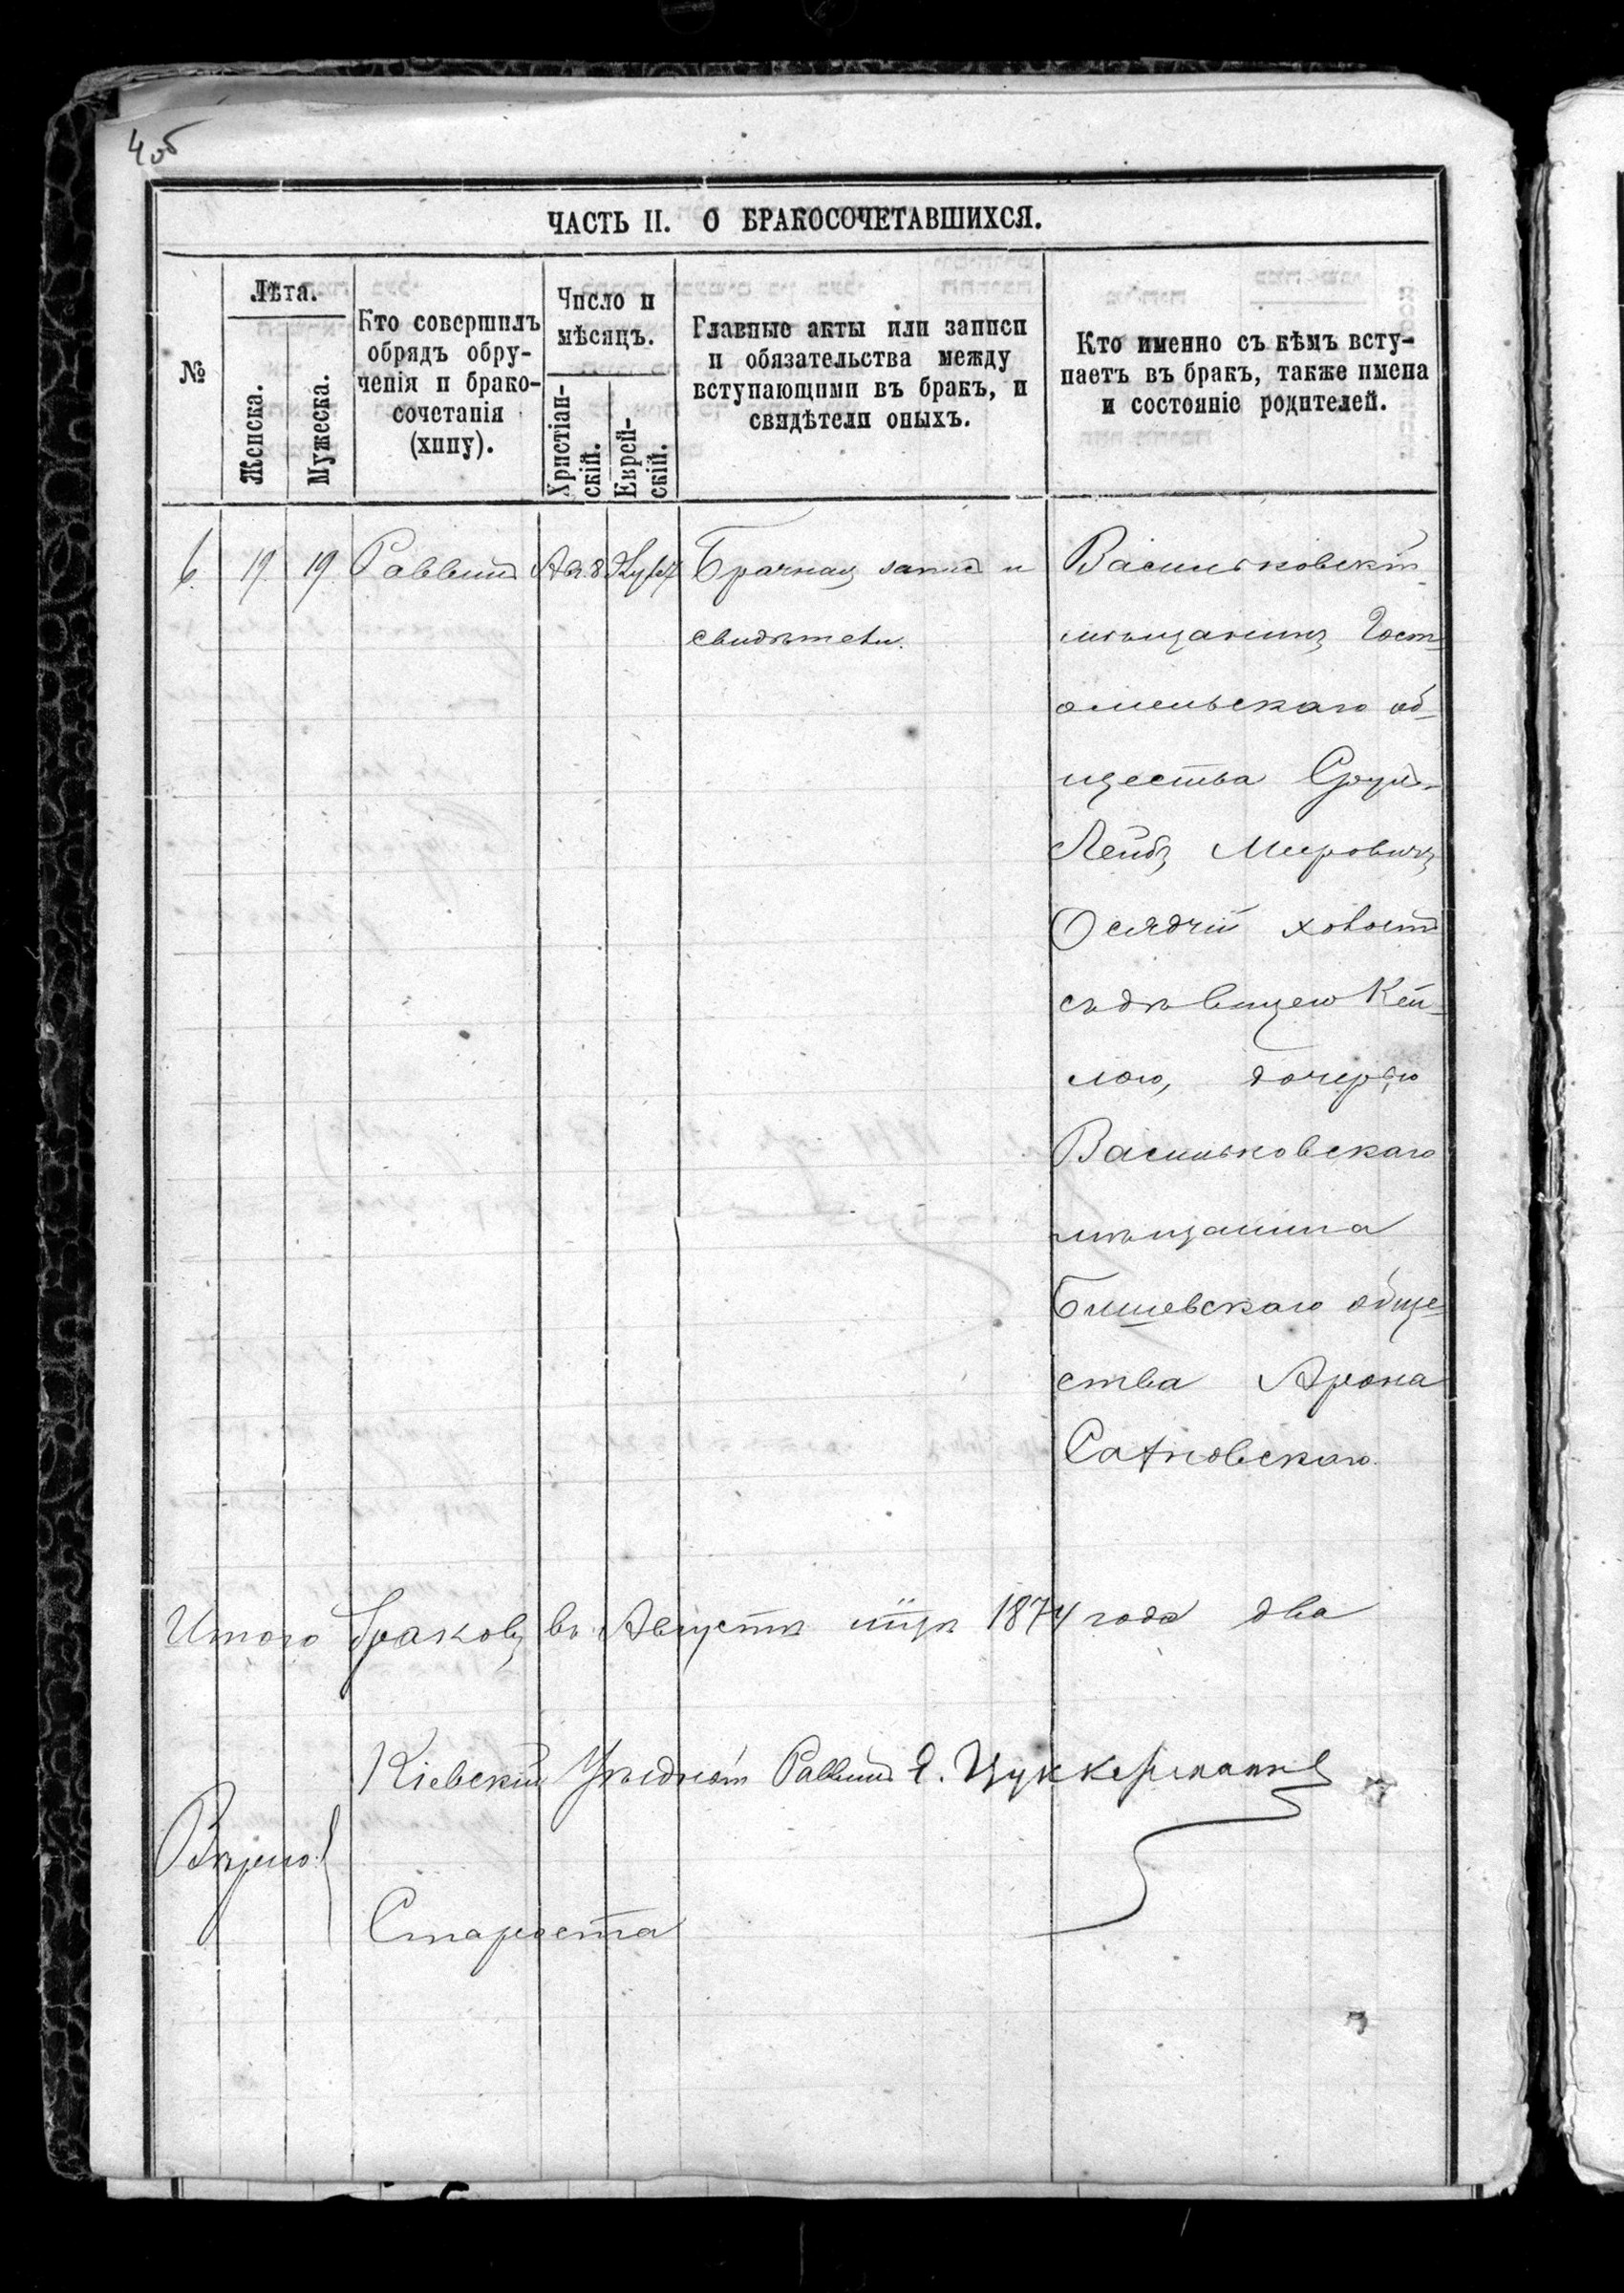 4об
ЧАСТЬ II. О БРАКОСОЧЕТАВШИХСЯ.
№
Лѣта.
Женска.
Мужеска.
Кто совершилъ
обрядъ обру-
ченія и брако-
сочетанія
(хипу).
Число и
мѣсяцъ.
Христіан-
скій.
Еврей-
скій.
Главные акты или записи
и обязательства между
вступающими въ бракъ, и
свидѣтели оныхъ.
Кто именно съ кѣмъ всту-
паетъ въ бракъ, также имена
и состояніе родителей.
6. 19. 19. Раввинъ Ав. 8 Брачная запис и
свидѣтели.
Васильковскій
мѣщанинъ Гост-
омельскаго об-
щества Сруль-
Лейбъ Мееровичъ
Осядчій холостъ
съ дѣвицею Кей-
лою, дочерью
Васильковскаго
мѣщанина
Бышевскаго обще-
ства Арона
Сатновскаго.
Итого браковъ въ Августѣ мцѣ 1874 года два
Кіевскій Уѣздный Раввинъ Я. Цуккерманъ
Вѣрно:
Староста